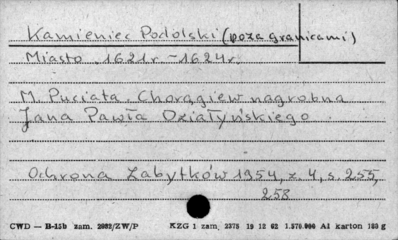 Kamieniec Podolski (poza granicami)
Miasto 1621r. - 1624r.
M. Puciata, Chorągiew nagrobna
Jana Pawła Działyńskiego.
Ochrona Zabytków 1954, z. 4, s. 255,
258
CWD — H-15b zam. 2082/ZW/P KZG 1 zam. 2375 19 12 62 1.570.000 AI karton 180 g